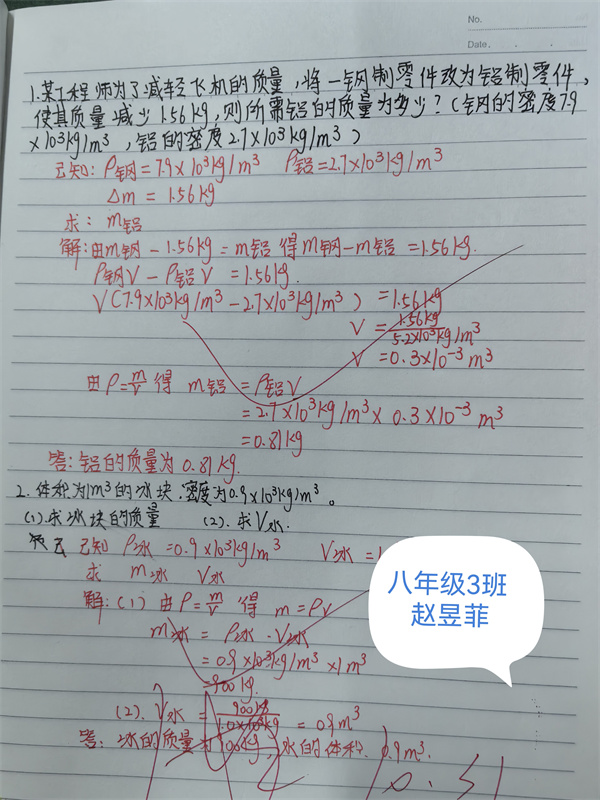 No.
Date.
1.某工程师为了减轻飞机的质量,将一钢制零件改为铝制零件,
使其质量减少1.56kg,则所需铝的质量为多少?(钢的密度7.9
×10³kg/m³,铝的密度2.7×10³kg/m³)
已知:ρ钢=7.9×10³kg/m³ ρ铝=2.7×10³kg/m³
Δm=1.56kg
求:m铝
解:由m钢-1.56kg=m铝 得m钢-m铝=1.56kg.
ρ钢V-ρ铝V=1.56kg.
V(7.9×10³kg/m³-2.7×10³kg/m³)=1.56kg
V=1.56kg/5.2×10³kg/m³
V=0.3×10⁻³m³
由ρ=m/V得 m铝=ρ铝V
=2.7×10³kg/m³×0.3×10⁻³m³
=0.81kg
答:铝的质量为0.81kg.
2.体积为1m³的冰块.密度为0.9×10³kg/m³。
(1).求冰块的质量 (2).求V水.
已知 ρ冰=0.9×10³kg/m³ V冰=1
求 m冰 V水
解:(1)由ρ=m/V得 m=ρV
m冰=ρ冰·V冰
=0.9×10³kg/m³×1m³
=900kg.
(2).V水=900kg/1.0×10³kg=0.9m³
答:冰的质量为900kg,水的体积.0.9m³.
八年级3班
赵昱菲